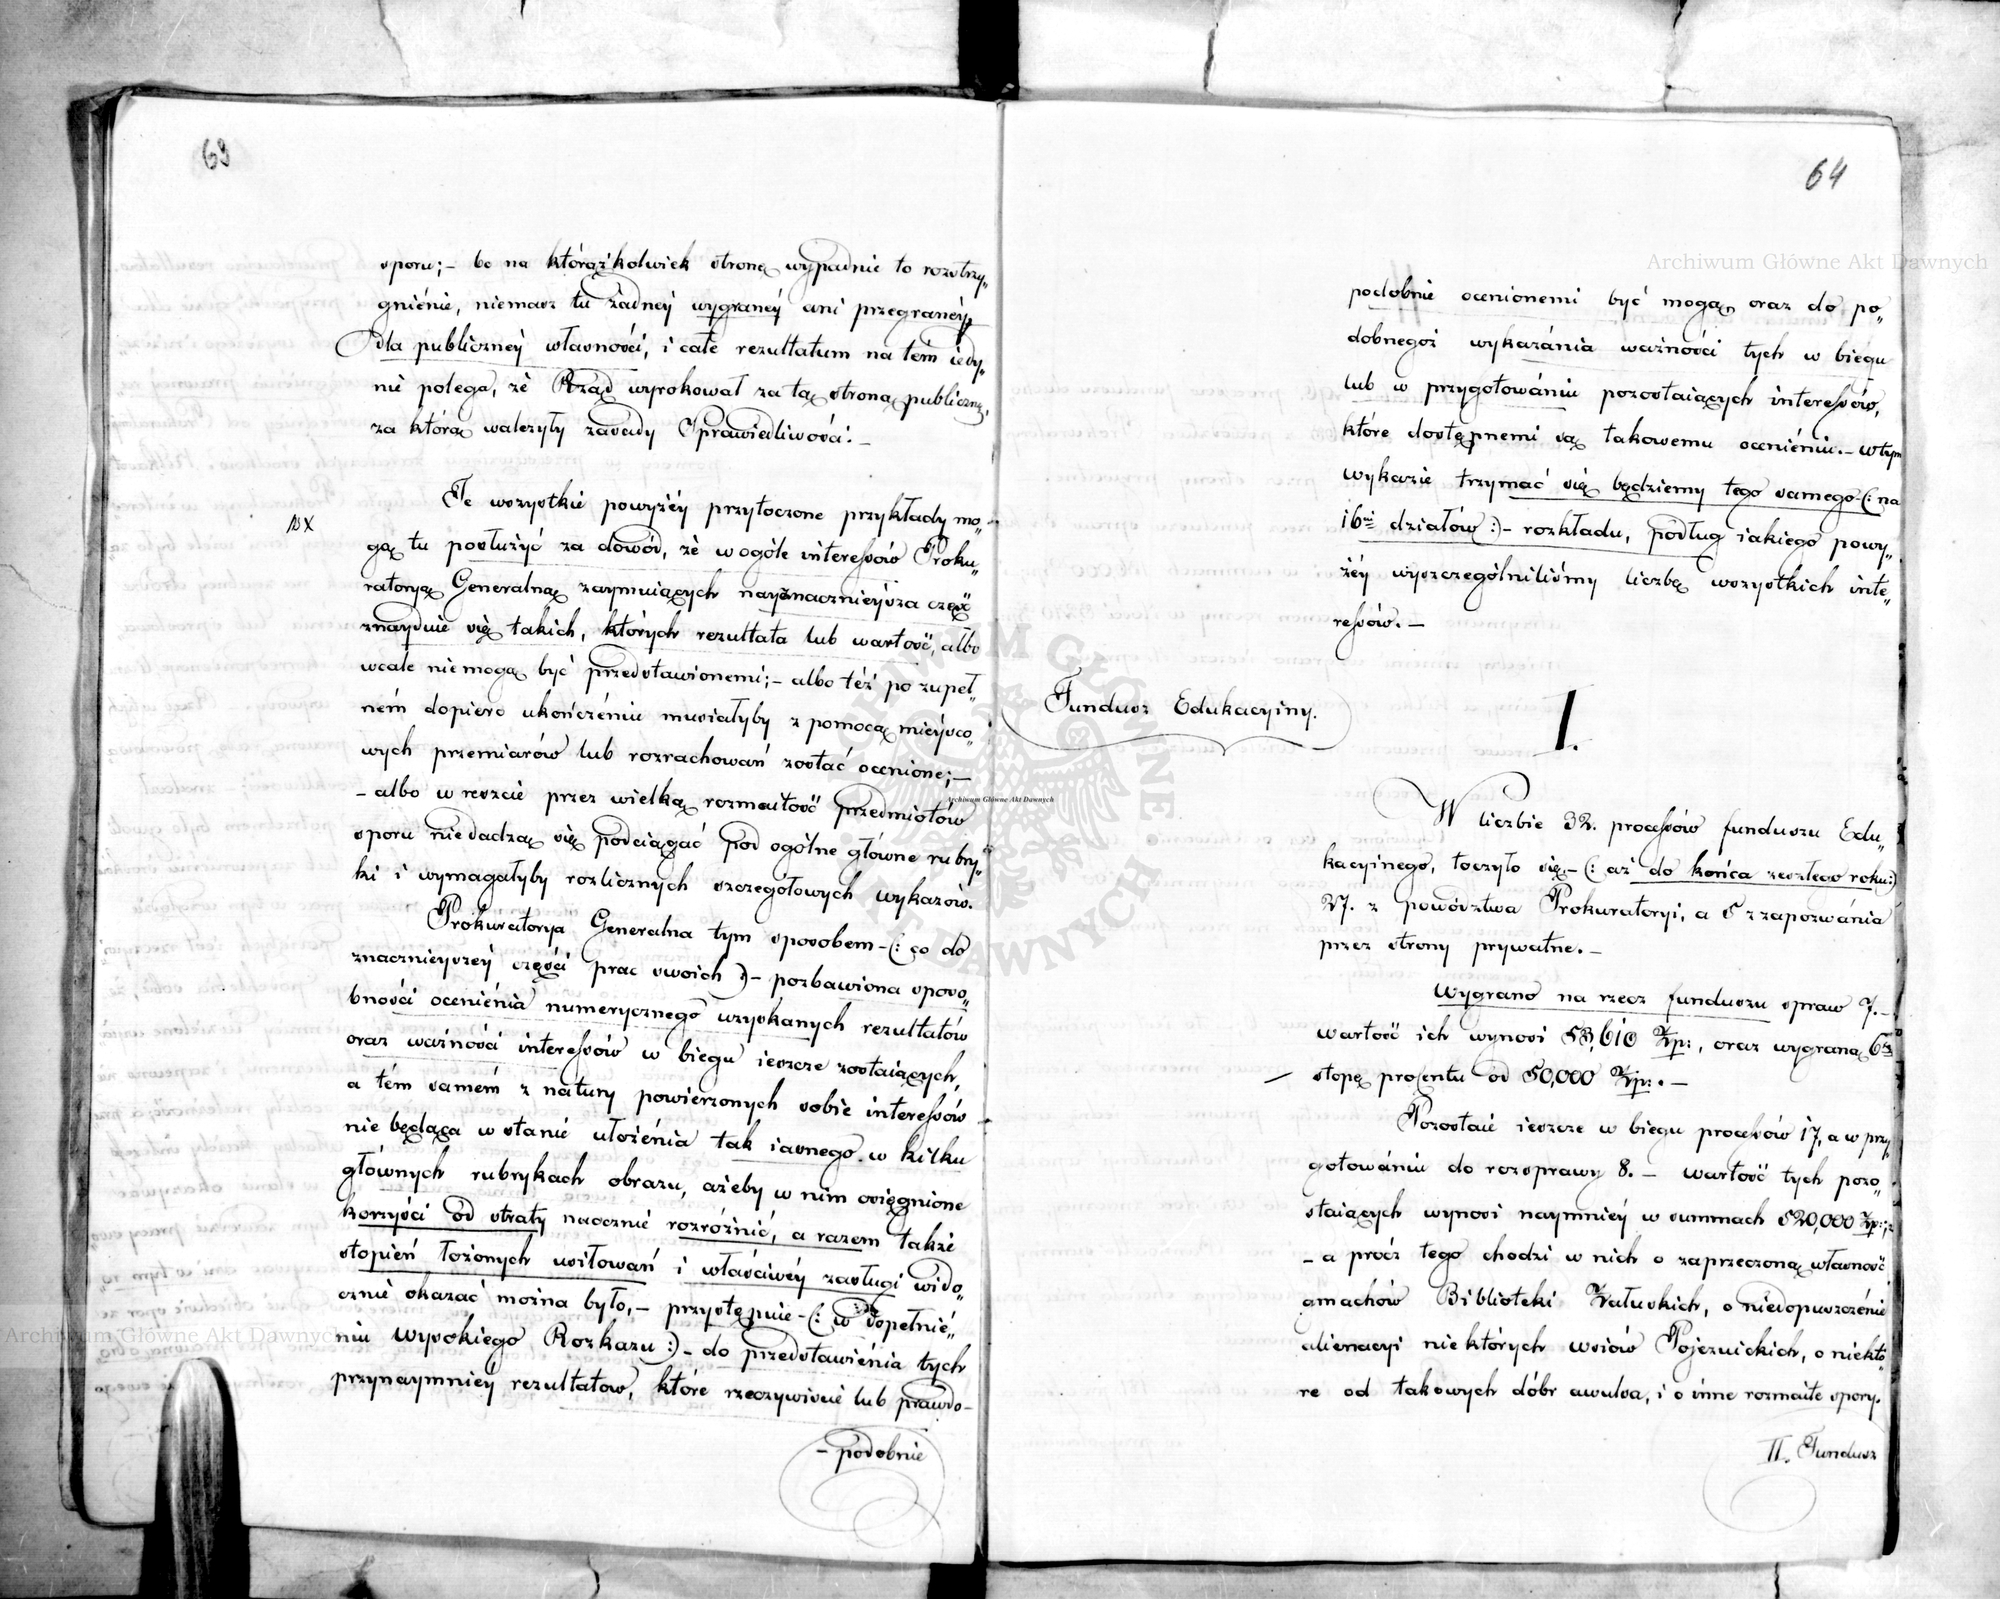 63
sporu;- bo na którąźkolwiek stronę wypadnie to rozstrzy„
gniénie, niemasz tu żadnéy wygranéy ani przegranéy
dla publicznéy własności, i całe rezultatum na tém iedy„
nie polega, że Rząd wyrokował za tą stroną publiczną,
za którą walczyły zasady Sprawiedliwości.-
Te wszystkie powyżéy przytoczone przykłady mo„
gą tu posłużyć za dowód, że w ogóle interessów Proku„
ratoryą Generalną zaymuiących nayznacznieysza część
znayduie się takich, których rezultata lub wartość, albo
wcale niemogą być przedstawionemi;- albo też po zupeł„
ném dopiero ukończéniu musiałyby z pomocą mieysco„
wych przemiarów lub rozrachowań zostać ocenione;-
- albo w reszcie przez wielką rozmaitość przedmiotów
sporu niedadzą się podciągać pod ogólne główne rubry„
ki i wymagałyby rozlicznych szczegółowych wykazów.
Prokuratorya Generalna tym sposobem -(: co do
znacznieyszéy części prac swoich :)- pozbawiona sposo„
bności oceniénia numerycznego uzyskanych rezultatów
oraz ważności interessów w biegu ieszcze zostaiących,
a tém samém z natury powierzonych sobie interessów
nie będąca w stanie ułożénia tak iasnego w kilku
głównych rubrykach obrazu, ażeby w nim osięgnione
korzyści od straty naocznie rozróżnić, a razem także
stopień łożonych usiłowań i właściwéy zasługi wido„
cznie okazać można było,- przystępuie -(: w dopełnié„
niu wysokiego Rozkazu :)- do przedstawiénia tych
przynaymniéy rezultatów, które rzeczywiście lub prawdo-
- podobnie
64
podobnie ocenionemi być mogą, oraz do po„
dobnegoż wykazánia ważności tych w biegu
lub w przygotowániu pozostaiących interessów,
które dostępnemi są takowemu ocenieniu.- W tym
wykazie trzymać się będziemy tego samego -(: na
16ści działów :)- rozkładu, podług iakiego powy„
żéy wyszczególniliśmy liczbę wszystkich inte„
ressów.-
Fundusz Edukacyiny.
I.
W liczbie 32. processów funduszu Edu„
kacyinego, toczyło się -(: aż do końca zeszłego roku :)
27. z powództwa Prokuratoryi, a 5 z zapozwánia
przez strony prywatne.-
Wygrano na rzecz funduszu spraw 7.-
wartość ich wynosi 53,610 Złp:, oraz wygraną 6tą
stopę procentu od 50,000 Złp:.-
Pozostaie ieszcze w biegu processów 17, a w przy
gotowániu do rozsprawy 8.- wartość tych pozo„
staiących wynosi naymniéy w summach 520,000 Złp:;
- a prócz tego chodzi w nich o zaprzeczoną własność
gmachów Biblioteki Załuskich, o niedopuszczénie
alienacyi niektórych wsiów Pojezuickich, o niektó„
re od takowych dóbr awulsa, i o inne rozmaite spory.
II. Fundusz
Archiwum Główne Akt Dawnych
Archiwum Główne Akt Dawnych
Archiwum Główne Akt Dawnych